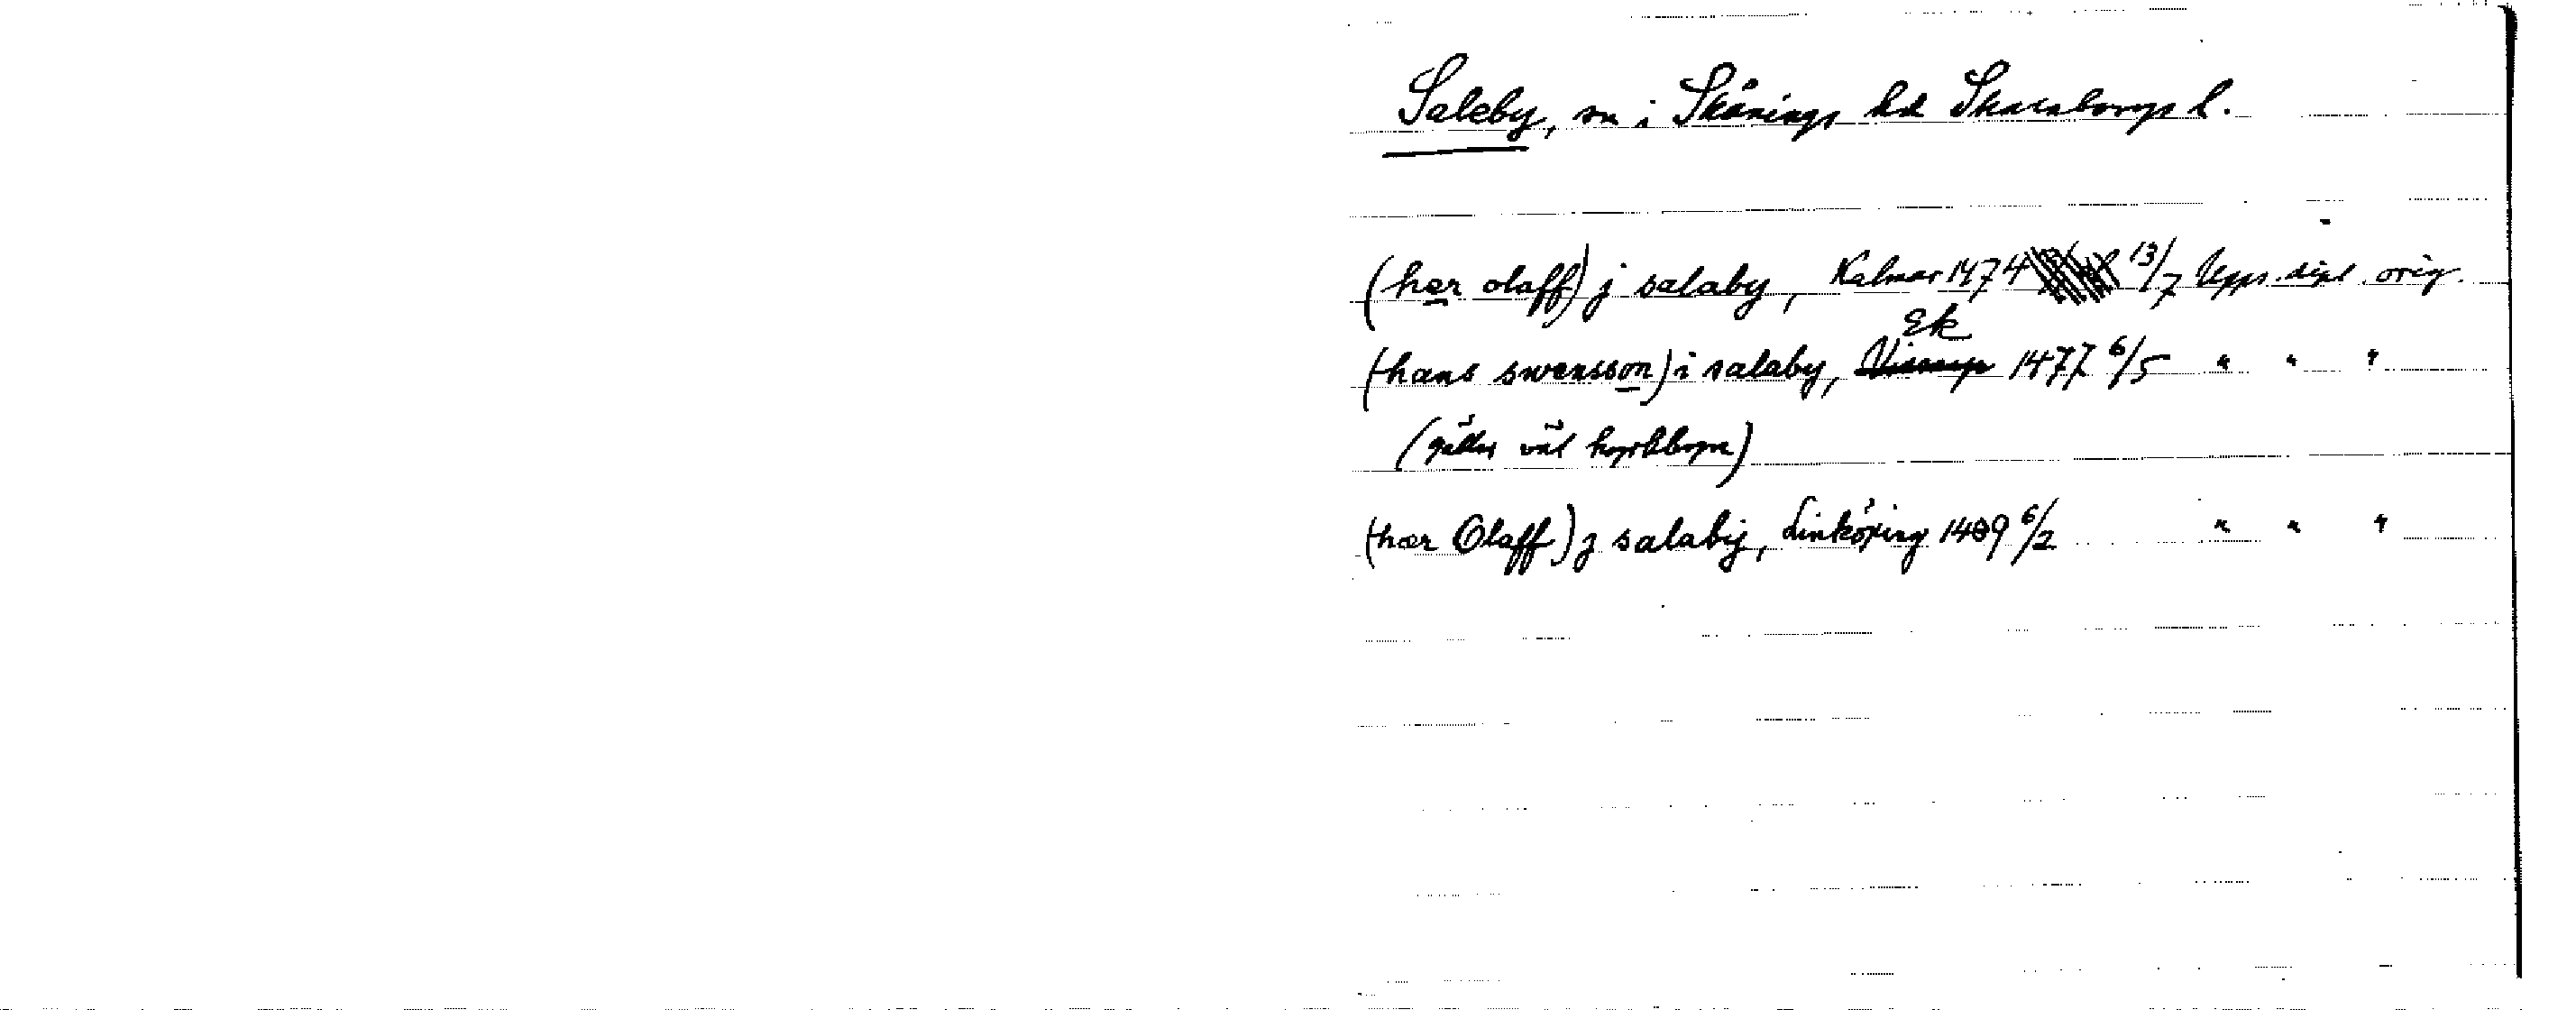 Saleby, sn i Skånings hd Skaraborgs l.
(her olaff) j salaby, Kalmar 1474 13/7 Upps. dipl. orig.
Ek
(hans swensson) i salaby, 1477 6/5 " " "
(gäller väl kyrkbyn)
(hær Olaff) j salabij, Linköping 1489 6/2 " " "